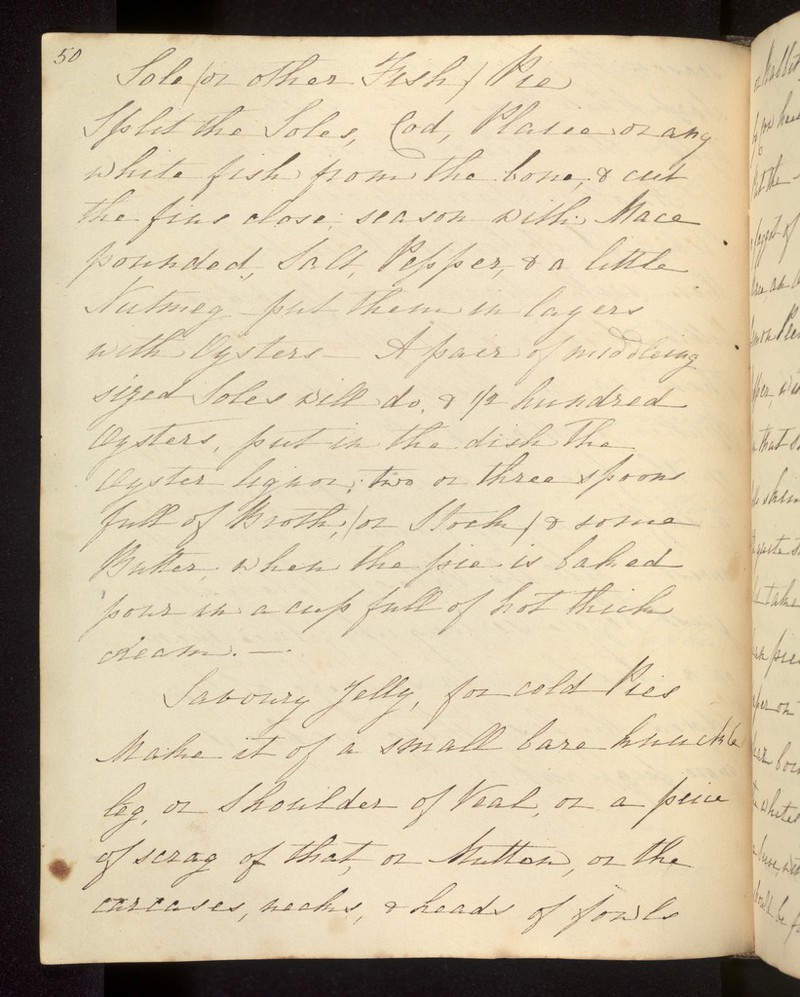 50
Sole (or other Fish) Pie
Split the Soles, Cod, Plaice or any
white fish from the bone, & cut
the fins close; season with Mace
pounded, Salt, Pepper, & a little
Nutmeg - put them in layers
with Oysters - A pair of middleing
sized Soles will do, & 1/2 hundred
Oysters, put in the dish the
Oyster liquor, two or three spoons
full of Broth, (or Stock) & some
Butter, when the pie is baked
pour in a cup full of hot thick
cream. -
Savoury Jelly, for cold Pies
Make it of a small bare knuckle
leg, or Shoulder of Veal, or a peice
of scrag of that, or Mutton, or the
carcases, necks, & heads of fowls